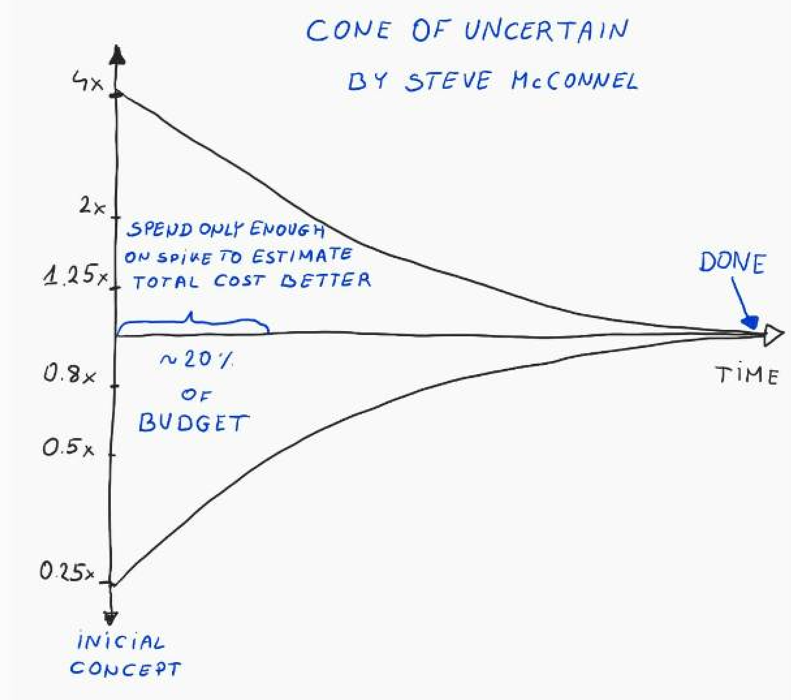 CONE OF UNCERTAIN
BY STEVE McCONNEL
4x
2x
SPEND ONLY ENOUGH
ON SPIKE TO ESTIMATE
TOTAL COST BETTER
1.25x
DONE
~20%
OF
BUDGET
TiME
0.8x
0.5x
0.25x
iNiCiAL
CONCEPT